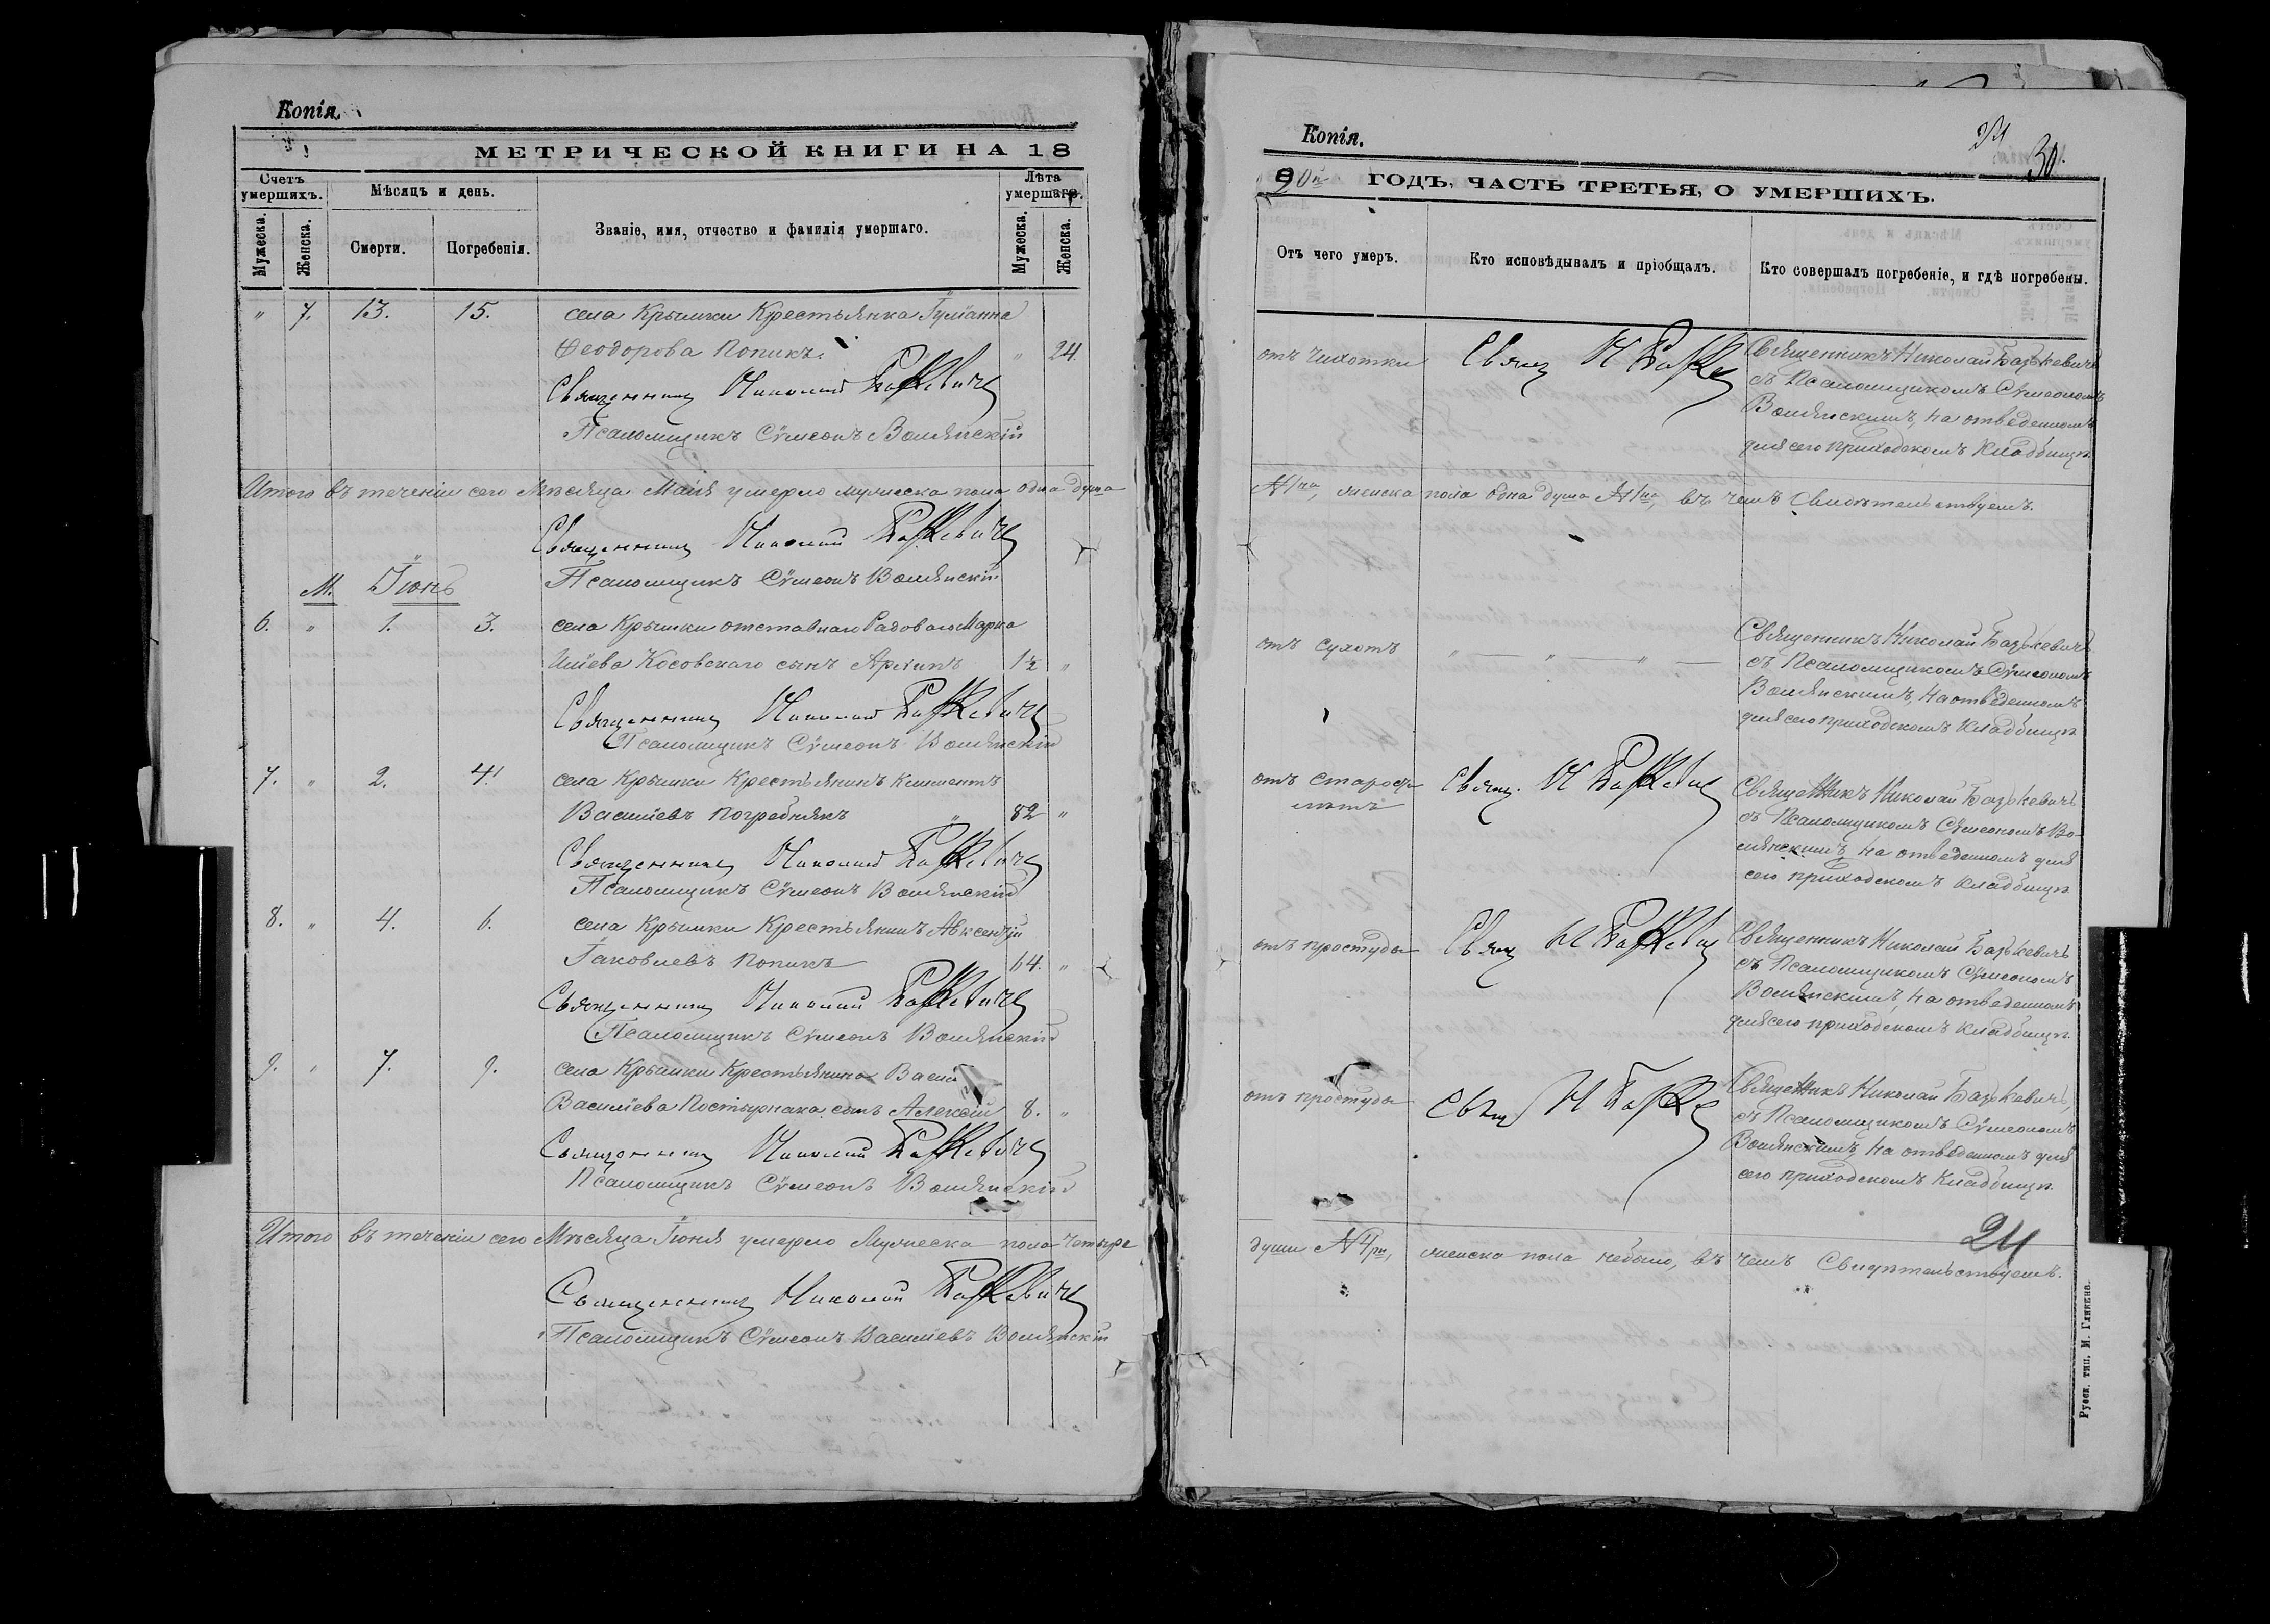 Копія.
МЕТРИЧЕСКОЙ КНИГИ НА 18
Счетъ умершихъ.
Мѣсяцъ и день.
Званіе, имя, отчество и фамилія умершаго.
Лѣта умершаго.
Мужеска.
Женска.
Смерти.
Погребенія.
Мужеска.
Женска.
" 7. 13. 15. села Крышки Крестьянка Іуліанна
Феодорова Попикъ. " 24.
Священникъ Николай Базькевичъ
Псаломщикъ Сѵмеонъ Волянскій
Итого въ теченіи сего Мѣсяца Маія умерло мужеска пола одна душа
Священникъ Николай Базькевичъ
Псаломщикъ Сѵмеонъ Волянскій
М. Іюнь
6. " 1. 3. села Крышки отставнаго Рядоваго Марка
Иліева Косовскаго сынъ Архипъ 1½ "
Священникъ Николай Базькевичъ
Псаломщикъ Сѵмеонъ Волянскій
7. " 2. 4. села Крышки Крестьянинъ Климентъ
Василіевъ Погребнякъ " 82 "
Священникъ Николай Базькевичъ
Псаломщикъ Сѵмеонъ Волянскій
8. " 4. 6. села Крышки Крестьянинъ Авксентій
Іаковлевъ Попикъ 64. "
Священникъ Николай Базькевичъ
Псаломщикъ Сѵмеонъ Волянскій
9. " 7. 9. села Крышки Крестьянина
Василіева сынъ Алексій 8. "
Священникъ Николай Базькевичъ
Псаломщикъ Сѵмеонъ Волянскій
Итого въ теченіи сего Мѣсяца Іюня умерло Мужеска пола четыре
Священникъ Николай Базькевичъ
Псаломщикъ Сѵмеонъ Василіевъ Волянскій
Копія.
30.
90й ГОДЪ, ЧАСТЬ ТРЕТЬЯ, О УМЕРШИХЪ.
Отъ чего умеръ.
Кто исповѣдывалъ и пріобщалъ.
Кто совершалъ погребеніе, и гдѣ погребены.
отъ чихотки Свящ Н Базьке Священникъ Николай Базькевичъ
съ Псаломщикомъ Сѵмеономъ
Волянскимъ, на отведенномъ
для сего приходскомъ Кладбищѣ.
№ 1на, женска пола одна душа № 1на, въ чемъ Свидѣтельствуемъ.
отъ сухотъ " — " — " — Священникъ Николай Базькевичъ
съ Псаломщикомъ Сѵмеономъ
Волянскимъ, на отведенномъ
для сего приходскомъ Кладбищѣ
отъ старости Свящ. Н Базькевич Священникъ Николай Базькевичъ
лѣтъ съ Псаломщикомъ Сѵмеономъ Во-
лянскимъ, на отведенномъ для
сего приходскомъ Кладбищѣ
отъ простуды Свящ Н Базькевич Священникъ Николай Базькевичъ
съ Псаломщикомъ Сѵмеономъ
Волянскимъ, на отведенномъ
для сего приходскомъ Кладбищѣ.
отъ простуды Свящ Н Базьке Священникъ Николай Базькевичъ,
съ Псаломщикомъ Сѵмеономъ
Волянскимъ на отведенномъ для
сего приходскомъ Кладбищѣ.
24
души № 4ри, женска пола небыло, въ чемъ Свидѣтельствуемъ.
Русск. тип. М. Гликена.